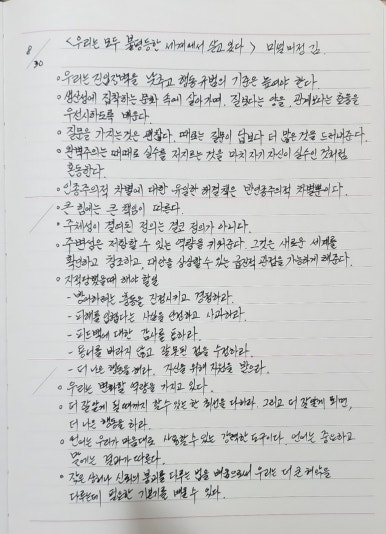 8/30
<우리는 모두 불평등한 세계에서 살고 있다> 미셸 미정 김.
◦ 우리는 진입장벽을 낮추고 행동 규범의 기준은 높여야 한다.
◦ 생산성에 집착하는 문화 속에 살아가며, 질보다는 양을, 관계보다는 효율을
우선시하도록 배운다.
◦ 질문을 가지는것은 괜찮다. 때로는 질문이 답보다 더 많은 것을 드러내준다.
◦ 완벽주의는 때때로 실수를 저지르는 것을 마치 자기 자신이 실수인 것처럼
혼동한다.
◦ 인종주의적 차별에 대한 유일한 해결책은 반인종주의적 차별뿐이다.
◦ 큰 힘에는 큰 책임이 따른다.
◦ 주체성이 결여된 정의는 결코 정의가 아니다.
◦ 주변성은 저항할 수 있는 역량을 키워준다. 그것은 새로운 세계를
확언하고 창조하고, 대안을 상상할 수 있는 급진적 관점을 가능하게 해준다.
◦ 지적당했을때 해야 할일
- 방어하려는 충동을 진정시키고 경청하라.
- 피해를 입혔다는 사실을 인정하고 사과하라.
- 피드백에 대한 감사를 표하라.
- 동정을 바라지 않고 잘못된 점을 수정하라.
- 더 나은 행동을 하라. 자신을 위해 지원을 받으라.
◦ 우리는 변화할 역량을 가지고 있다.
◦ 더 잘 알게 될 때까지 할 수 있는 한 최선을 다하라. 그리고 더 잘 알게 되면,
더 나은 행동을 하라.
◦ 언어는 우리가 마음대로 사용할 수 있는 강력한 도구이다. 언어는 중요하고
말에는 결과가 따른다.
◦ 작은 상처나 신뢰의 붕괴를 다루는 법을 배움으로써 우리는 더 큰 해악을
다루는데 필요한 기본기를 배울 수 있다.